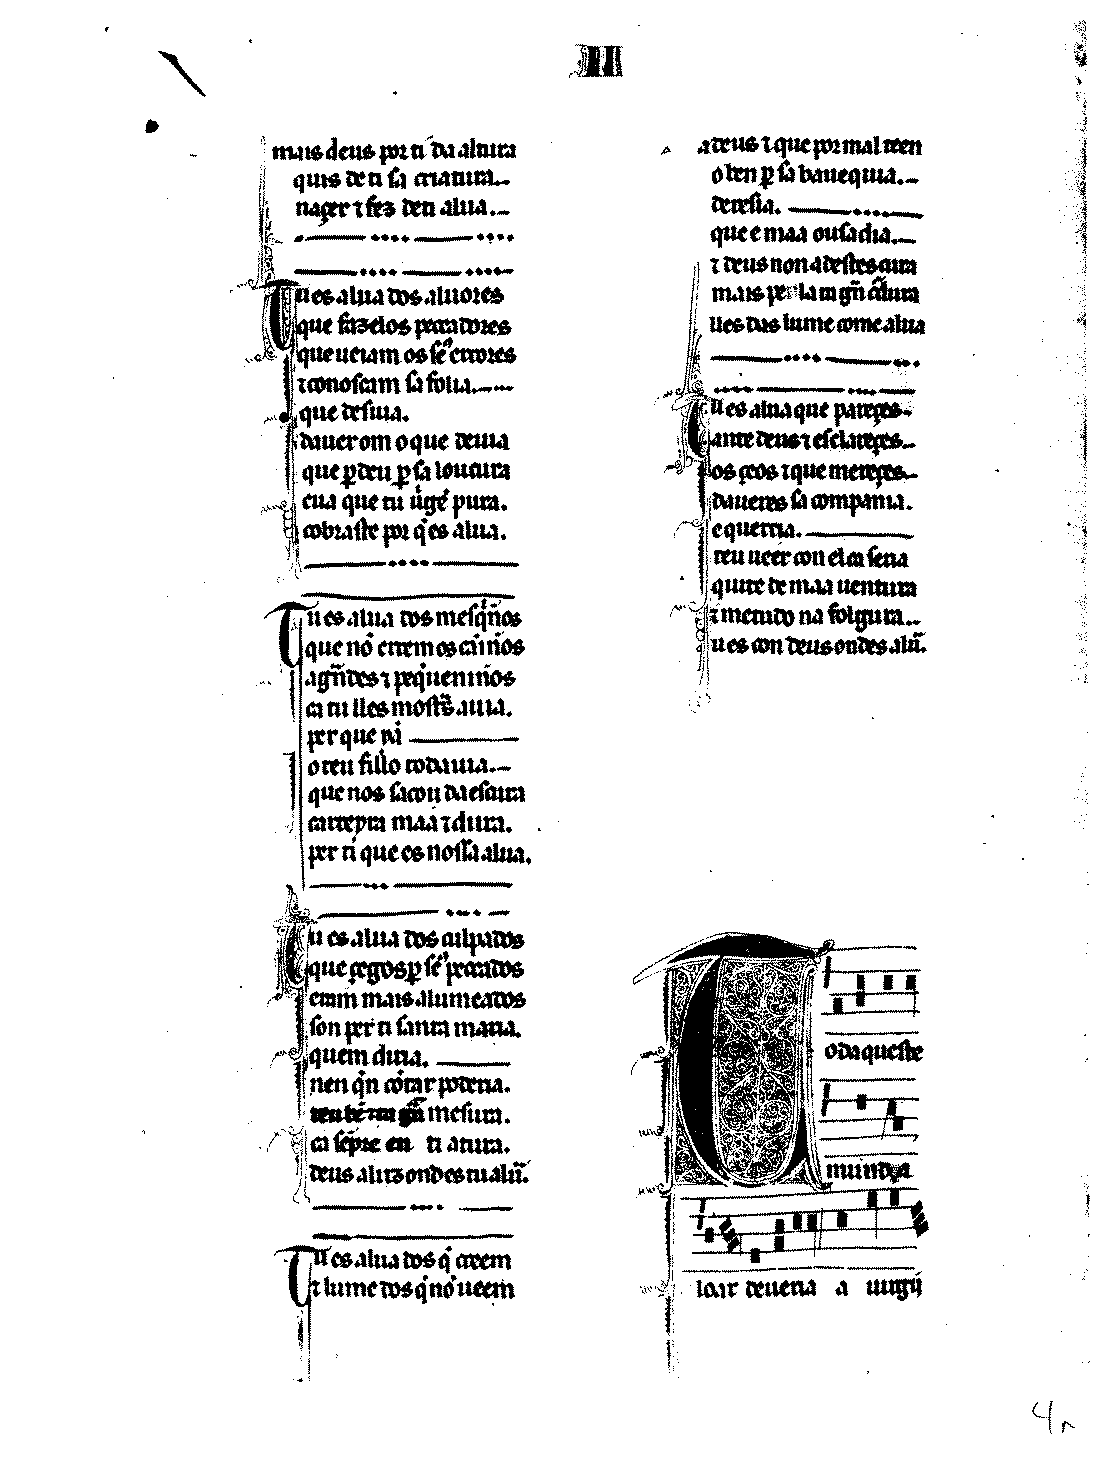 III
mais deus por ti da altura
quis de ti sa criatura.
naçer ⁊ fez den alua.
Tu es alua dos aluores
que fazelos peccadores
que ueiam os se⁹ errores
⁊ connosçam sa folia.
que desuia.
dauer om o que deuia
que ꝑdeu ꝑ sa loucura
eua que tu uirgẽ pura.
cobraste por q̇ es alua.
Tu es alua dos mesq̇ños
que nõ errem os camĩnos
a grãdes ⁊ peq̇ueninos
ca tu lles mostras a uia.
per que ui
o teu fillo todauia.
que nos sacou da escura
carreyra maa ⁊ dura.
per ti que es nossa alua.
Tu es alua dos culpados
que çegos ꝑ se⁹ peccados
eram mais alumeados
son per ti santa maria.
quem diria.
nen q̇n cõtar poderia.
mesura.
ca sẽpre en ti atura.
deus aluiz ondes tu alũ.
Tu es alua dos q̇ creem
⁊ lume dos q̇ nõ ueem
a deus ⁊ que por mal teen
o ben ꝑ sa bauequia.
deresia.
que e maa ousadia.
⁊ deus non a destes cura
mais per la ta grã cordura
lles das lume come alua
Tu es alua que pareçes
ante deus ⁊ esclareçes
os çeos ⁊ que mereçes
daueres sa compania.
e querria.
teu ueer con el ca seria
quite de maa uentura
⁊ metudo na folgura.
u es con deus ondes alũ.
Tod aqueste
mund a
loar deueria a uirgij
4r